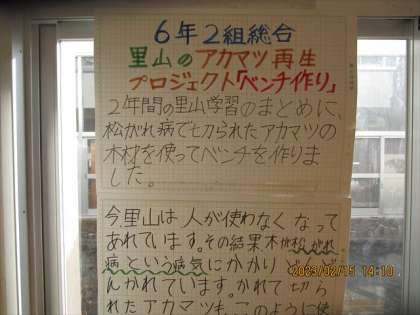 6年2組総合
里山のアカマツ再生
プロジェクト「ベンチ作り」
2年間の里山学習のまとめに、
松がれ病で切られたアカマツの
木材を使ってベンチを作りま
した。
今、里山は人が使わなくなって
あれています。その結果木が松がれ
病という病気にかかりどんど
んかれています。かれて切ら
れたアカマツも、このように使
2023/02/15 14:10